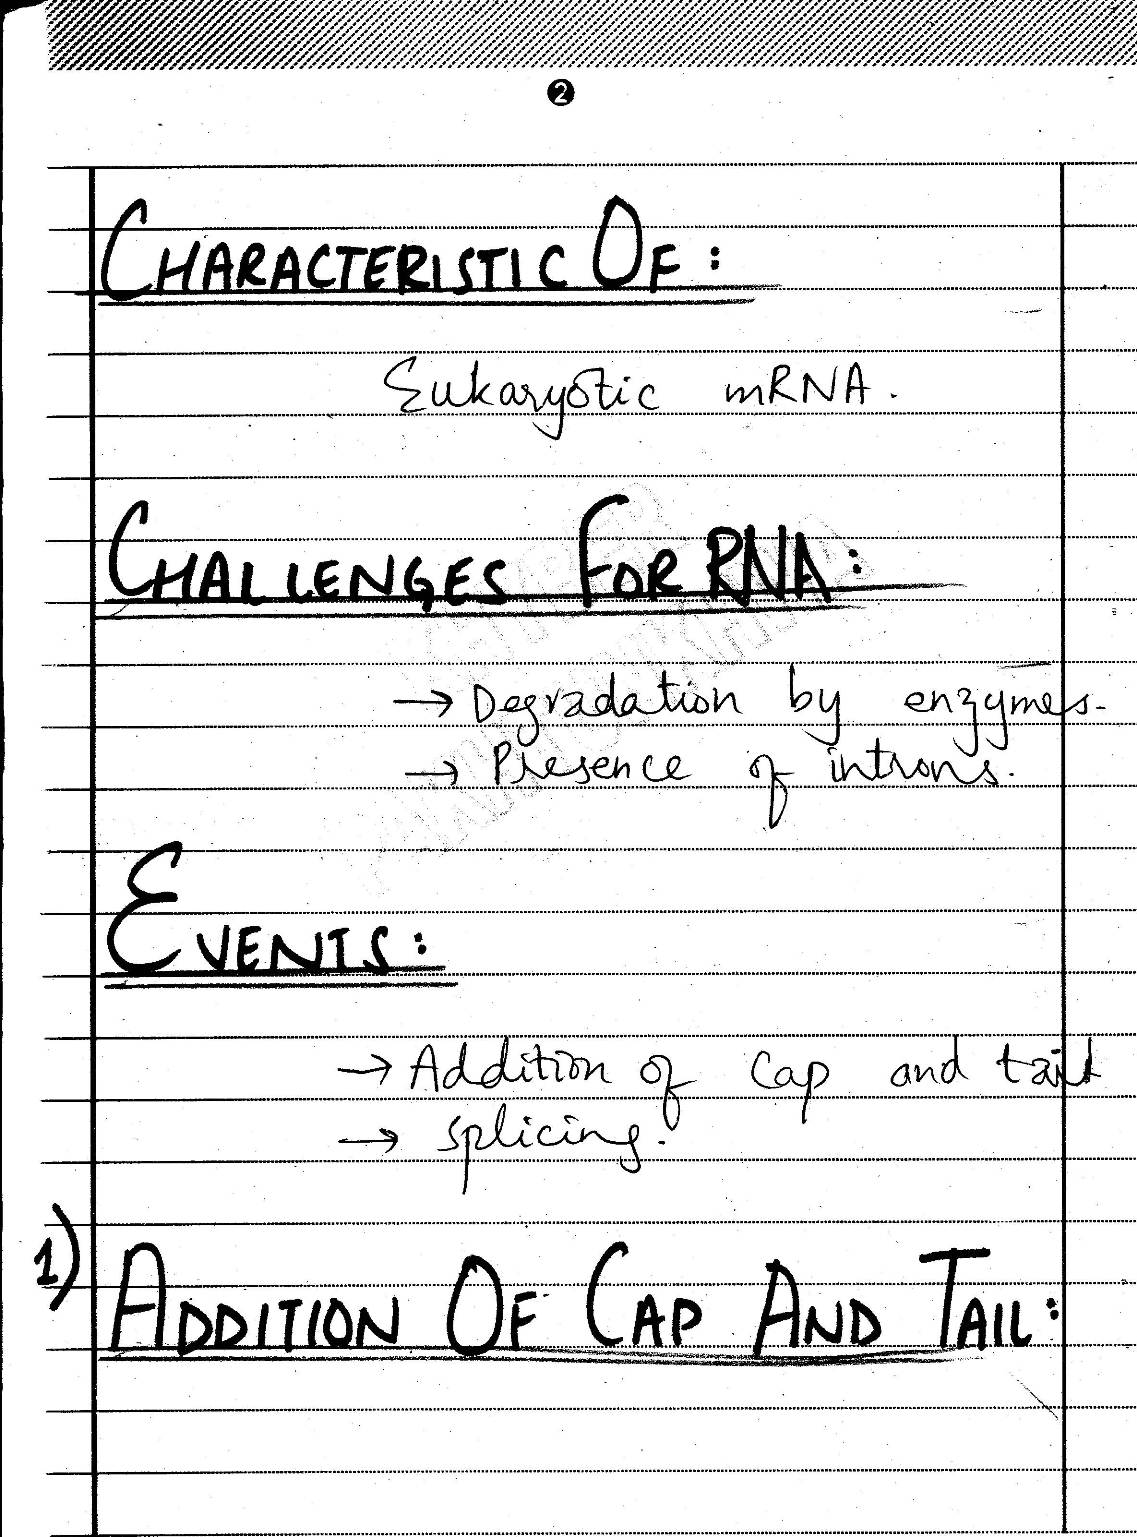 2
CHARACTERISTIC OF :
Eukaryotic mRNA.
CHALLENGES FOR RNA :
→ Degradation by enzymes.
→ Presence of introns.
EVENTS :
→ Addition of cap and tail
→ splicing.
1)
ADDITION OF CAP AND TAIL :